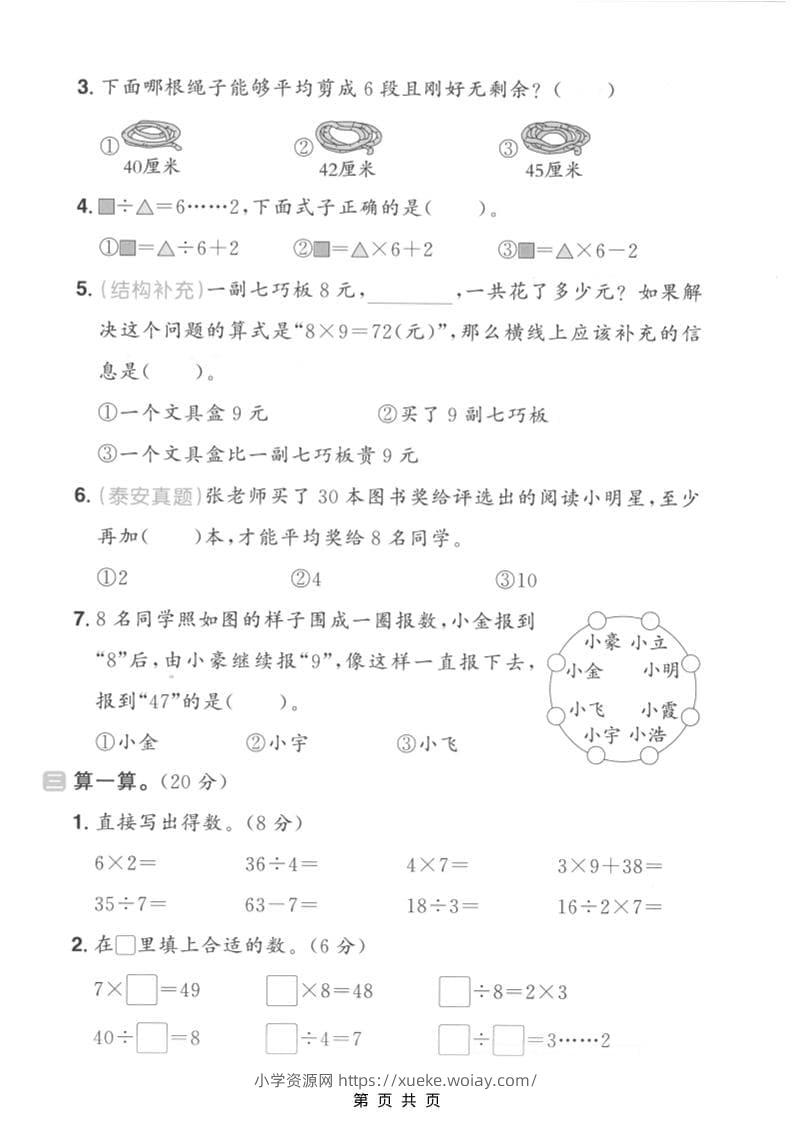 3. 下面哪根绳子能够平均剪成 6 段且刚好无剩余？（　　）
① ② ③
40厘米 42厘米 45厘米
4. ■÷△=6……2，下面式子正确的是（　　）。
①■=△÷6+2 ②■=△×6+2 ③■=△×6-2
5. (结构补充)一副七巧板 8 元，________，一共花了多少元？如果解
决这个问题的算式是“8×9=72(元)”，那么横线上应该补充的信
息是（　　）。
①一个文具盒 9 元 ②买了 9 副七巧板
③一个文具盒比一副七巧板贵 9 元
6. (泰安真题)张老师买了 30 本图书奖给评选出的阅读小明星，至少
再加（　　）本，才能平均奖给 8 名同学。
①2 ②4 ③10
7. 8 名同学照如图的样子围成一圈报数，小金报到
“8”后，由小豪继续报“9”，像这样一直报下去，
报到“47”的是（　　）。
①小金 ②小宇 ③小飞
小豪 小立
小金 小明
小飞 小霞
小宇 小浩
三 算一算。(20 分)
1. 直接写出得数。(8 分)
6×2= 36÷4= 4×7= 3×9+38=
35÷7= 63-7= 18÷3= 16÷2×7=
2. 在□里填上合适的数。(6 分)
7×□=49 □×8=48 □÷8=2×3
40÷□=8 □÷4=7 □÷□=3……2
小学资源网 https://xueke.woiay.com/
第 页 共 页